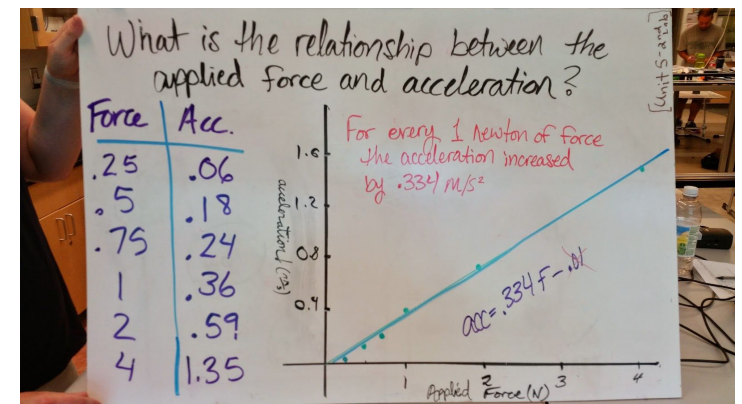 What is the relationship between the
applied force and acceleration?
[Unit 5 - 2nd Lab]
Force Acc.
.25 .06
.5 .18
.75 .24
1 .36
2 .59
4 1.35
For every 1 newton of force
the acceleration increased
by .334 m/s²
1.6
1.2
0.8
0.4
acceleration
acc = .334 F - .01
1 2 3 4
Applied Force (N)